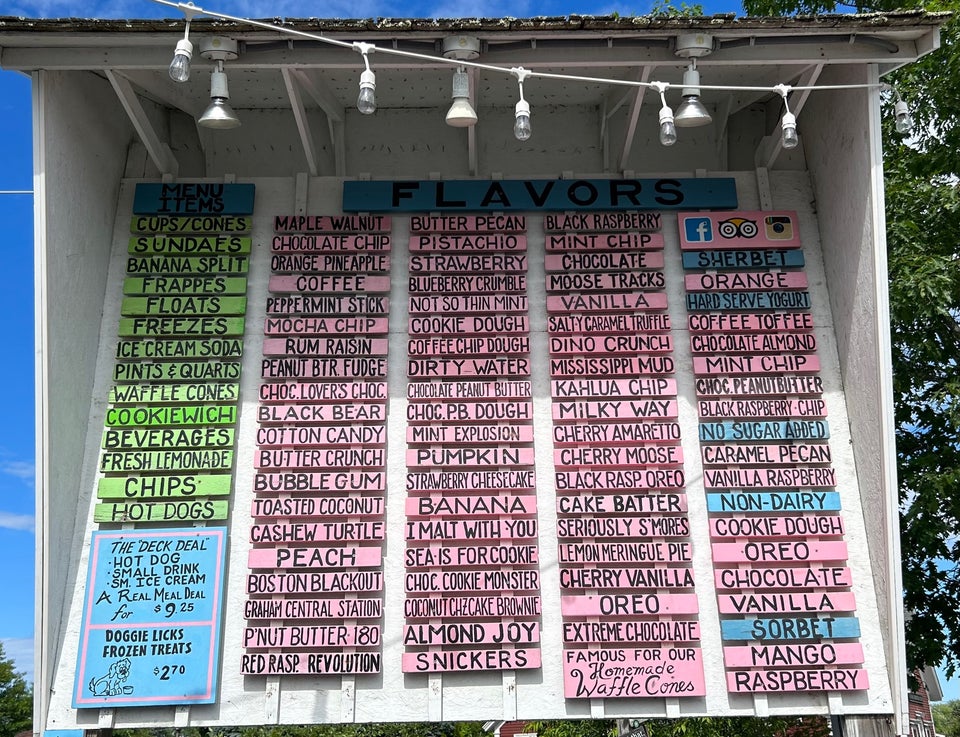 MENU
ITEMS
CUPS/CONES
SUNDAES
BANANA SPLIT
FRAPPES
FLOATS
FREEZES
ICE CREAM SODA
PINTS & QUARTS
WAFFLE CONES
COOKIEWICH
BEVERAGES
FRESH LEMONADE
CHIPS
HOT DOGS
THE "DECK DEAL"
• HOT DOG
• SMALL DRINK
• SM. ICE CREAM
A REAL MEAL DEAL
for $9.25
DOGGIE LICKS
FROZEN TREATS
$2.70
FLAVORS
MAPLE WALNUT
CHOCOLATE CHIP
ORANGE PINEAPPLE
COFFEE
PEPPERMINT STICK
MOCHA CHIP
RUM RAISIN
PEANUT BTR. FUDGE
CHOC. LOVER'S CHOC.
BLACK BEAR
COTTON CANDY
BUTTER CRUNCH
BUBBLE GUM
TOASTED COCONUT
CASHEW TURTLE
PEACH
BOSTON BLACKOUT
GRAHAM CENTRAL STATION
P'NUT BUTTER 180
RED RASP. REVOLUTION
BUTTER PECAN
PISTACHIO
STRAWBERRY
BLUEBERRY CRUMBLE
NOT SO THIN MINT
COOKIE DOUGH
COFFEE CHIP DOUGH
DIRTY WATER
CHOCOLATE PEANUT BUTTER
CHOC. P.B. DOUGH
MINT EXPLOSION
PUMPKIN
STRAWBERRY CHEESECAKE
BANANA
I MALT WITH YOU
SEA IS FOR COOKIE
CHOC. COOKIE MONSTER
COCONUT CHZCAKE BROWNIE
ALMOND JOY
SNICKERS
BLACK RASPBERRY
MINT CHIP
CHOCOLATE
MOOSE TRACKS
VANILLA
SALTY CARAMEL TRUFFLE
DINO CRUNCH
MISSISSIPPI MUD
KAHLUA CHIP
MILKY WAY
CHERRY AMARETTO
CHERRY MOOSE
BLACK RASP. OREO
CAKE BATTER
SERIOUSLY S'MORES
LEMON MERINGUE PIE
CHERRY VANILLA
OREO
EXTREME CHOCOLATE
FAMOUS FOR OUR
Homemade
Waffle Cones
f
SHERBET
ORANGE
HARD SERVE YOGURT
COFFEE TOFFEE
CHOCOLATE ALMOND
MINT CHIP
CHOC. PEANUT BUTTER
BLACK RASPBERRY CHIP
NO SUGAR ADDED
CARAMEL PECAN
VANILLA RASPBERRY
NON-DAIRY
COOKIE DOUGH
OREO
CHOCOLATE
VANILLA
SORBET
MANGO
RASPBERRY